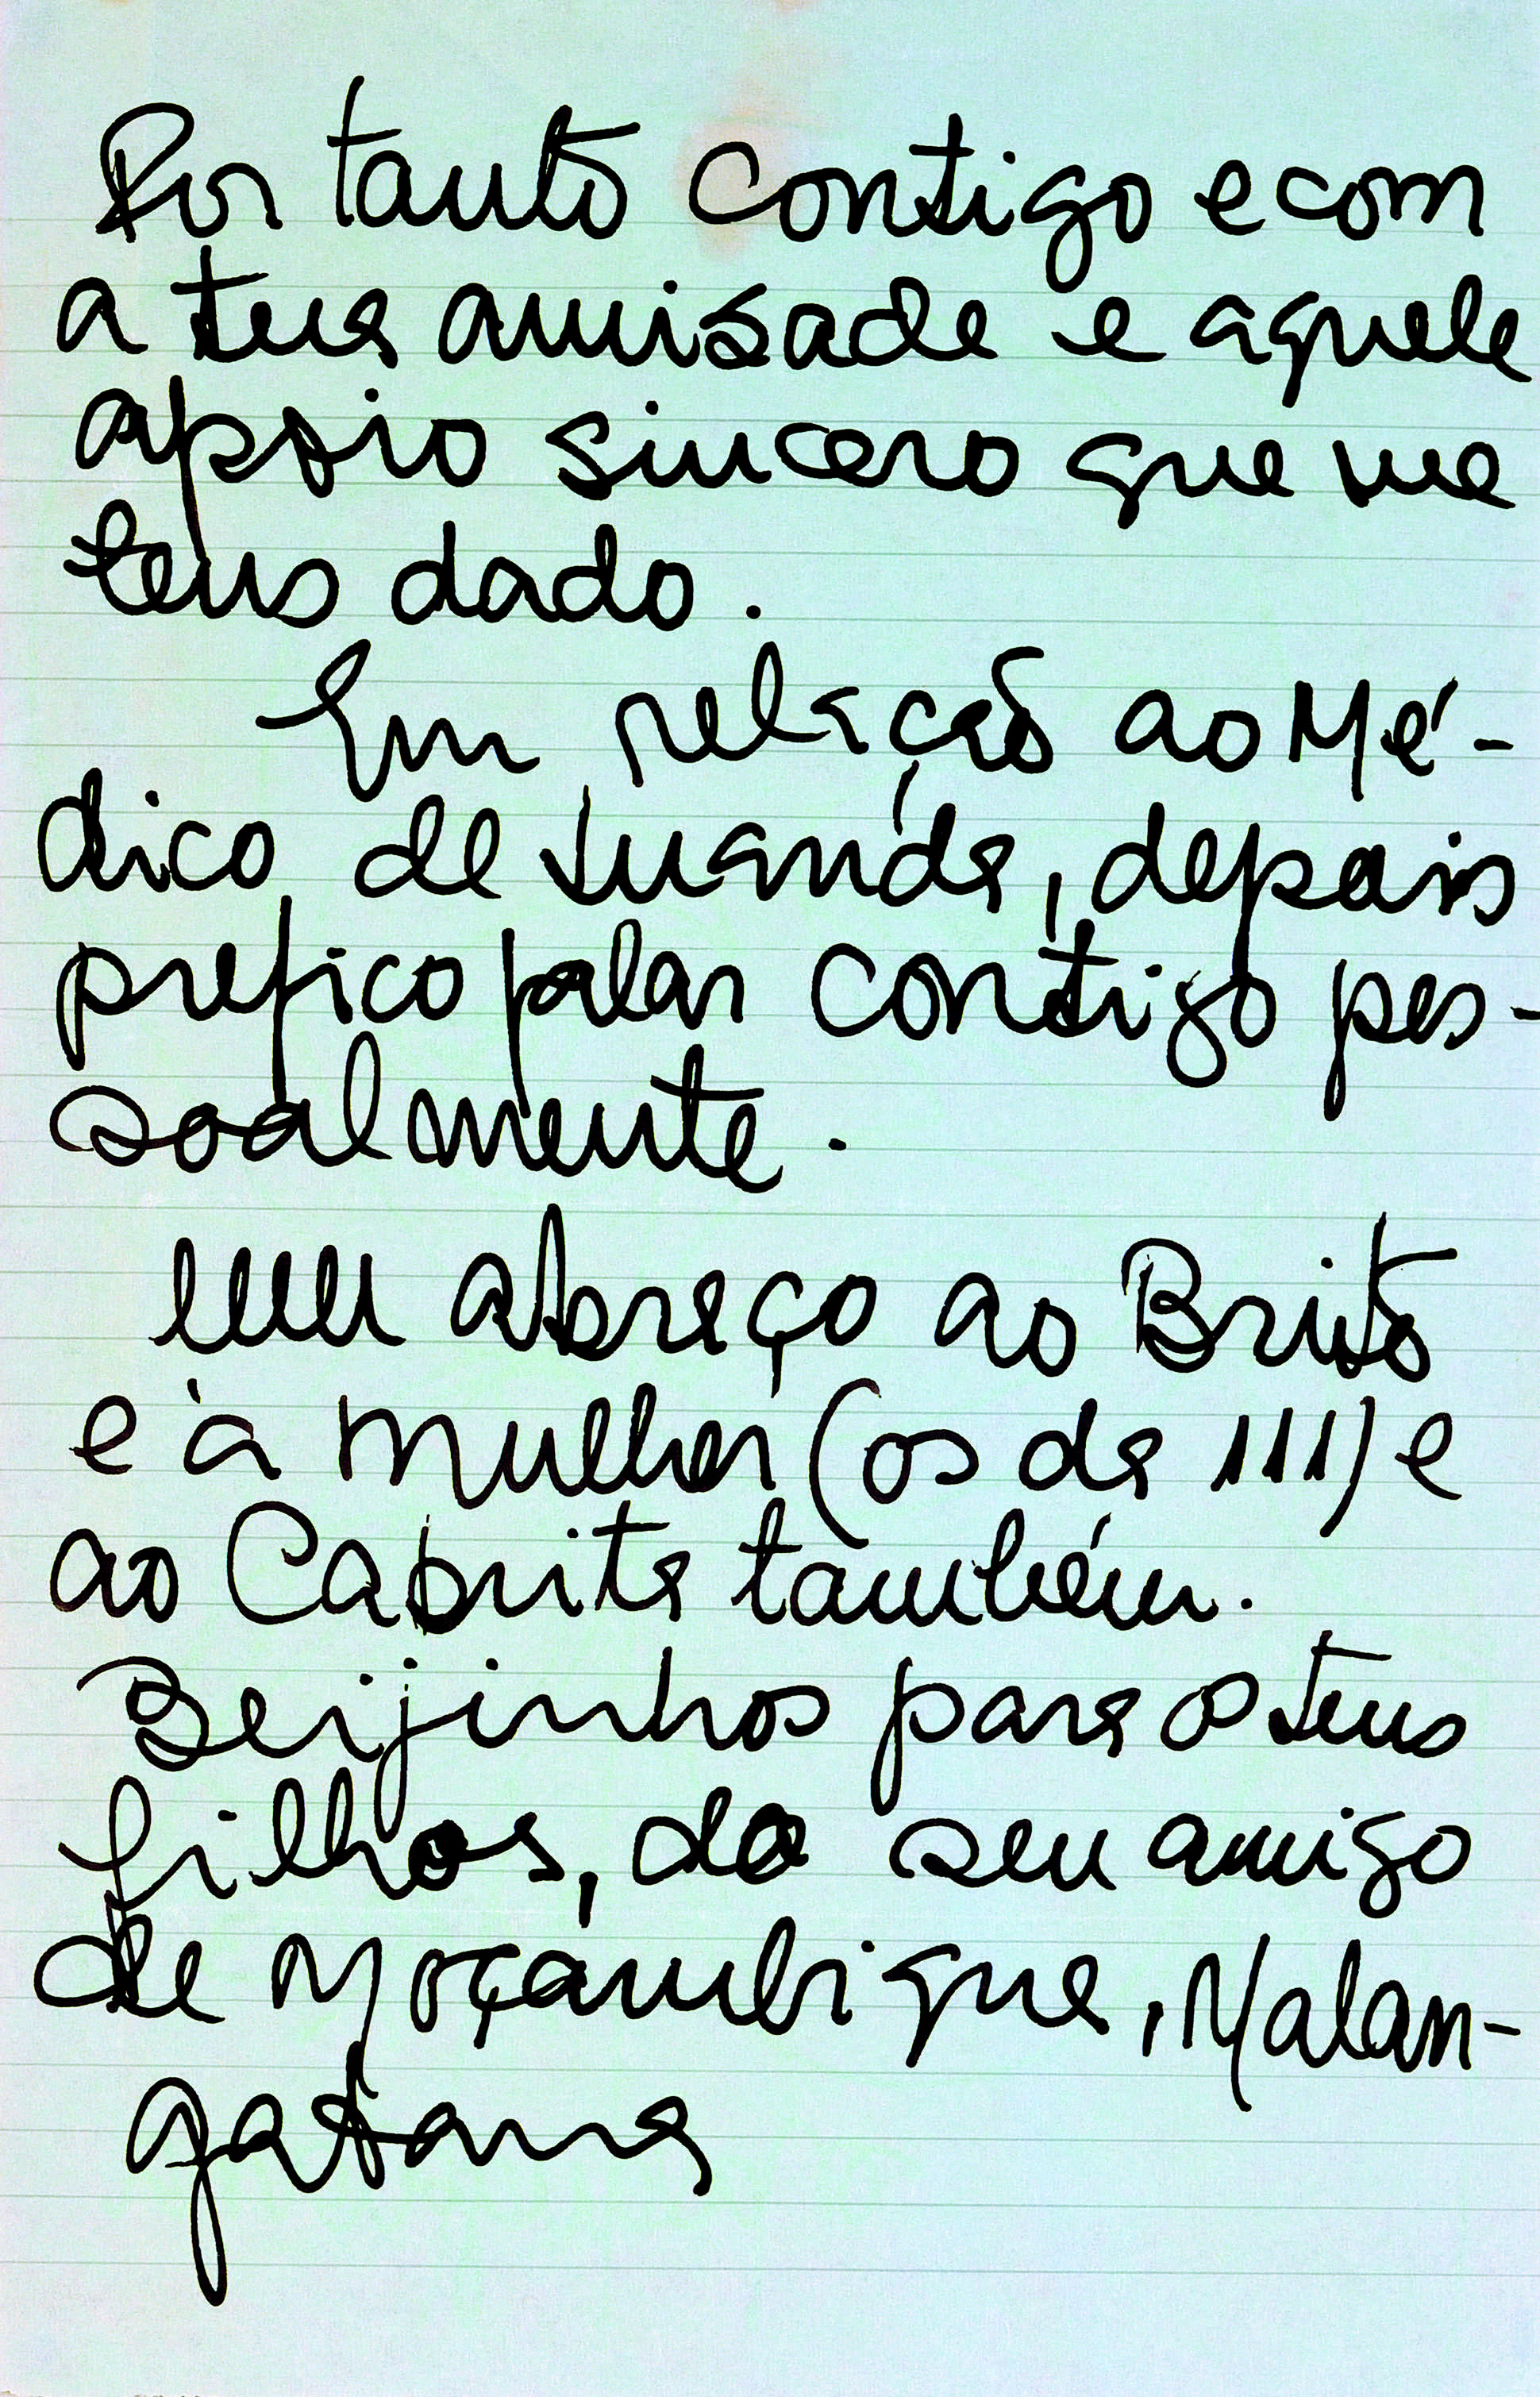 Por tanto contigo e com
a tua amisade e aquele
apoio sincero que me
tens dado.
Em relação ao Mé-
dico de Luanda, depois
prefico falar contigo pes-
soalmente.
Um abraço ao Brito
e à mulher (os da 111) e
ao Cabrita também.
Beijinhos para os teus
filhos, do seu amigo
de Moçambique, Malan-
gatana